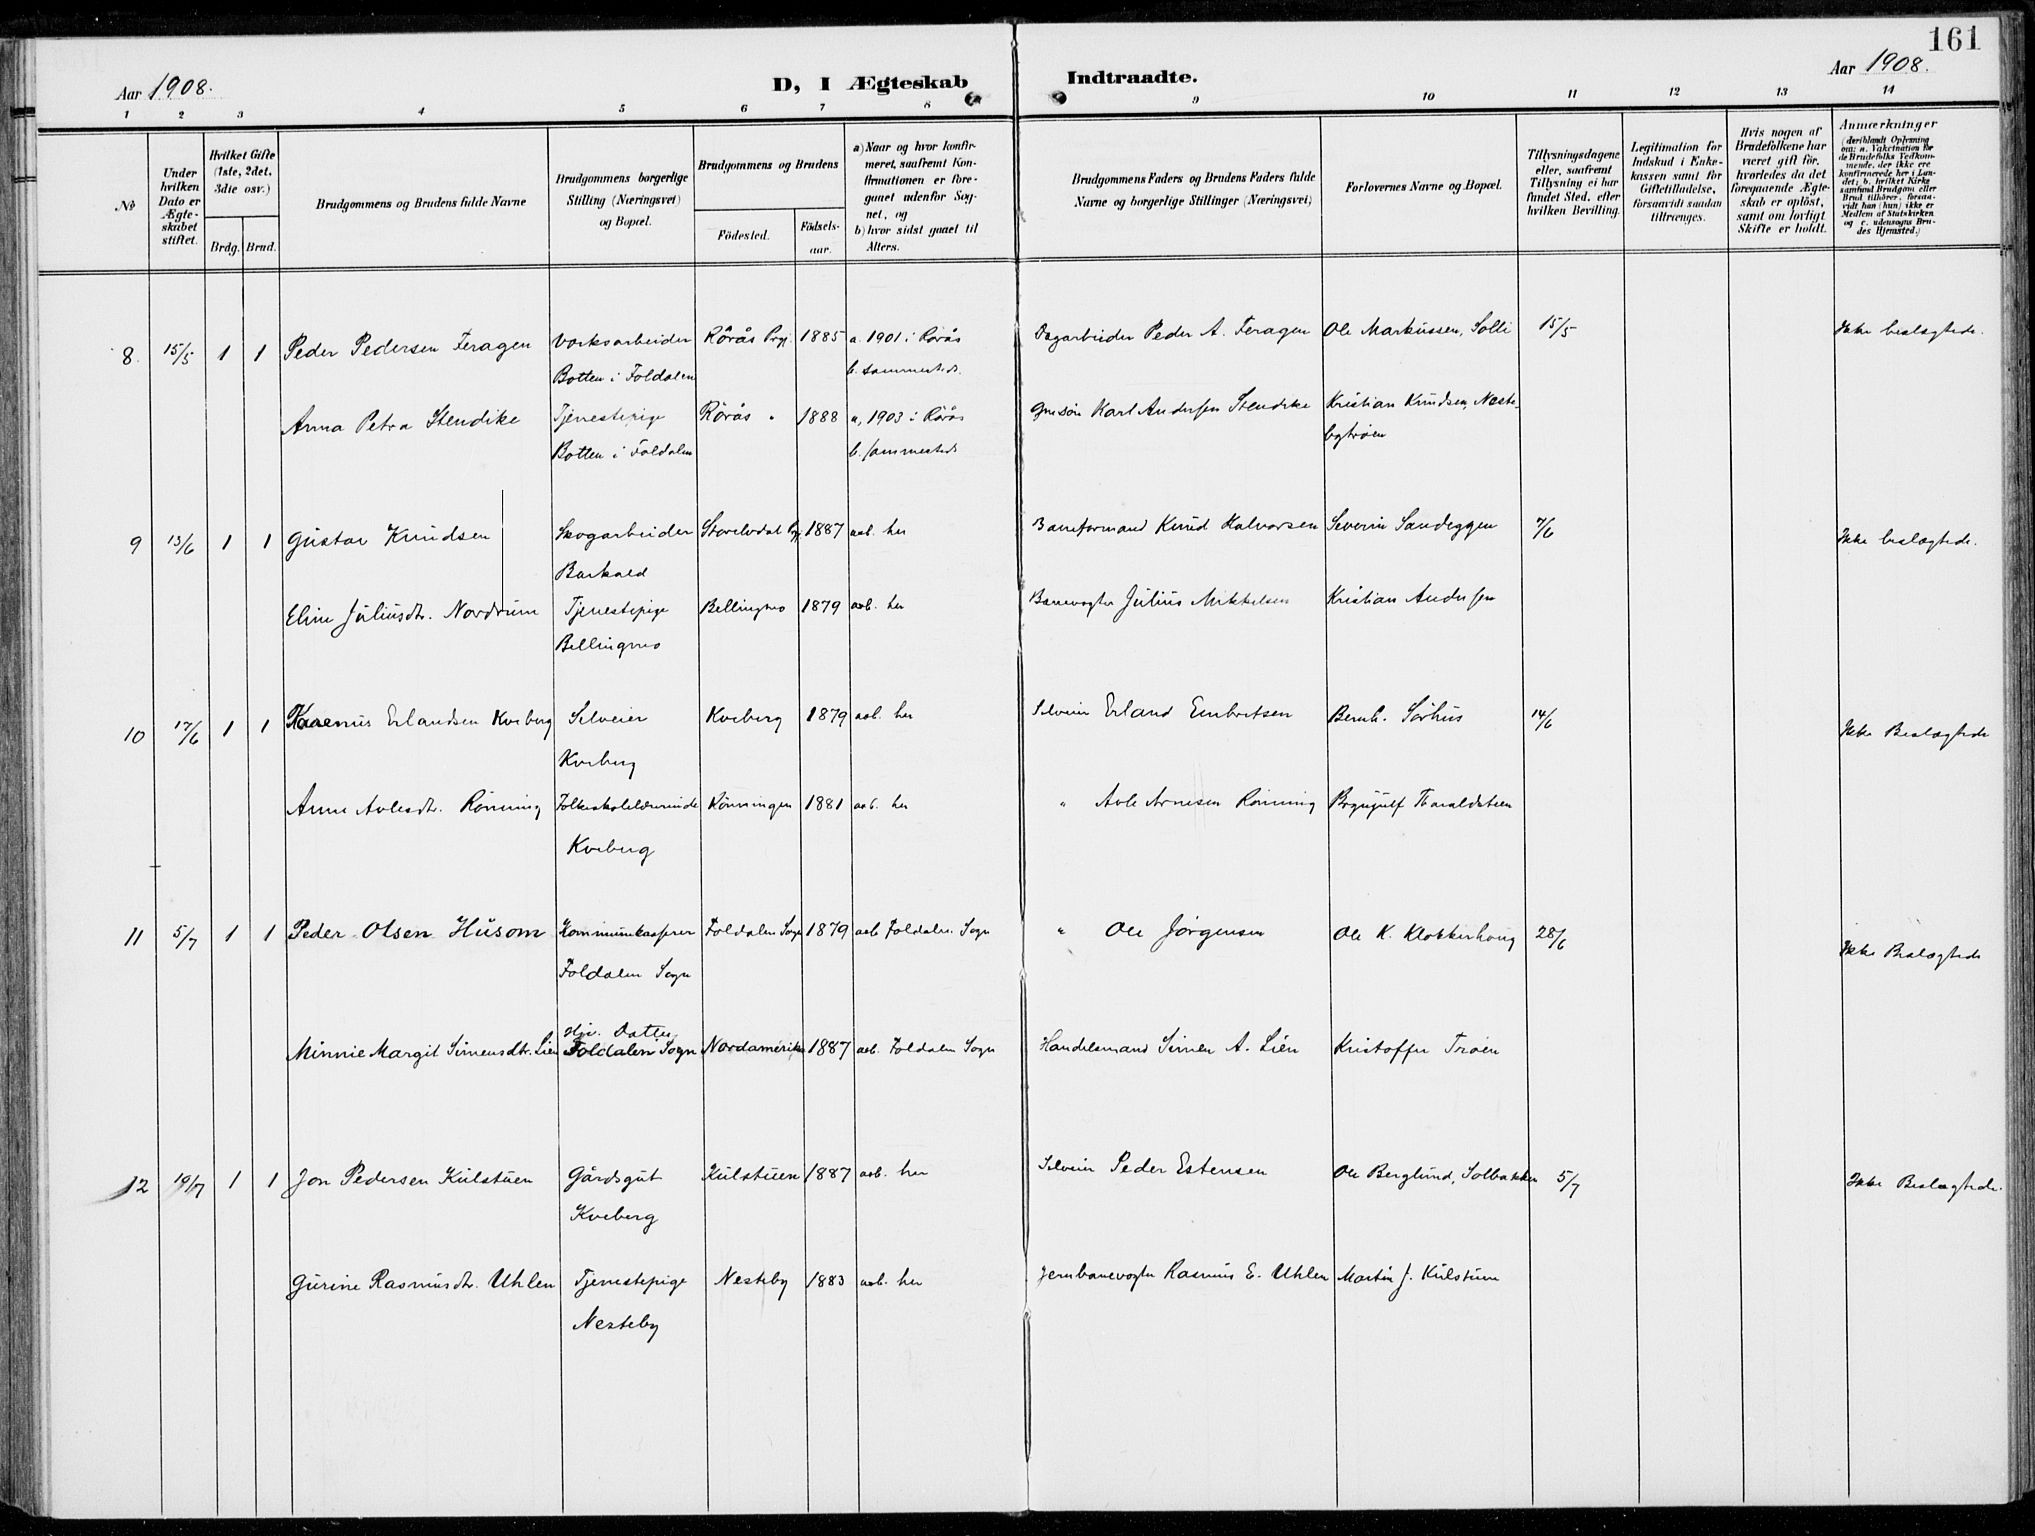 161
Aar 1908.
D, I Ægteskab Indtraadte.
Aar 1908.
1 2 3 4 5 6 7 8 9 10 11 12 13 14
No
Under hvilken Dato er Ægteskabet stiftet.
Hvilket Gifte (1ste, 2det, 3die osv.)
Brdg. Brud.
Brudgommens og Brudens fulde Navne
Brudgommens borgerlige Stilling (Næringsvei) og Bopæl.
Brudgommens og Brudens
Födested.
Födselsaar.
a) Naar og hvor konfirmeret, saafremt Konfirmationen er foregaaet udenfor Sognet, og
b) hvor sidst gaaet til Alters.
Brudgommens Faders og Brudens Faders fulde Navne og borgerlige Stillinger (Næringsvei)
Forlovernes Navne og Bopæl.
Tillysningsdagene eller, saafremt Tillysning ei har fundet Sted, efter hvilken Bevilling.
Legitimation for Indskud i Enkekassen samt for Giftetilladelse, forsaavidt saadan tiltrænges.
Hvis nogen af Brudefolkene har været gift för, hvorledes da det foregaaende Ægteskab er oplöst, samt om lovligt Skifte er holdt.
Anmærkninger
(deriblandt Oplysning om: a. Vaksination for de Brudefolks Vedkommende, der ikke ere konfirmerede her i Landet; b. hvilket Kirkesamfund Brudgom eller Brud tilhörer, forsaavidt han (hun) ikke er Medlem af Statskirken og c. udensogns Brudes Hjemsted.)
8 15/5 1 1 Peder Pedersen Feragen Verksarbeider Rörås Prgj. 1885 a. 1901 i Rörås Dagarbeider Peder A. Feragen Ole Markussen, Solli 15/5 Ikke beslægtede.
Botten i Foldalen b. sammesteds.
Anna Petra Stendike Tjenestepige Rörås " 1888 a. 1903 i Rörås Karl Andersen Stendike Kristian Knudsen, Neste-
Botten i Foldalen b. sammesteds bytrøen
9 13/6 1 1 Gustav Knudsen Skogarbeider Storelvdal Pgj. 1887 aob. her Baneformand Knud Halvorsen Severin Sandeggen 7/6 Ikke beslægtede.
Barkald
Eline Juliusdtr. Nordrum Tjenestepige Bellingmo 1879 aob. her Banevogter Julius Mikkelsen Kristian Andersen
Bellingmo
10 17/6 1 1 Erlandsen Kveberg Selveier Kveberg 1879 aob. her Selveier Erland Embretsen Bernh. Sørhus 14/6 Ikke Beslægtede
Kveberg
Anne Avlesdtr. Rönning Folkeskolelærerinde Rönningen 1881 aob. her " Avle Arnesen Rönning Brynjulf Haraldstuen
Kveberg
11 5/7 1 1 Peder Olsen Husom Kommunekasserer Foldalen Sogn 1879 aob Foldalen Sogn " Ole Jørgensen Ole K. Klokkerhoug 28/6 Ikke Beslægtede
Foldalen Sogn
Minnie Margit Simensdtr. Lien Hjv. Datter Nordamerika 1887 aob. Foldalen Sogn Handelsmand Simen A. Lien Kristoffer Trøen
Foldalen Sogn
12 19/7 1 1 Jon Pedersen Kulstuen Gårdsgut Kulstuen 1887 aob. her Selveier Peder Estensen Ole Berglund, Solbakken 5/7 Ikke Beslægtede.
Kveberg
Gurine Rasmusdtr. Uhlen Tjenestepige Nesteby 1883 aob. her Jernbanevogter Rasmus E. Uhlen Martin J. Kulstuen
Nesteby